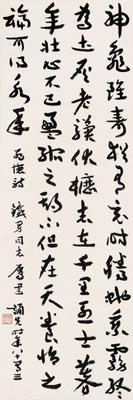 神龜雖壽猶有竟時騰蛇乘霧終
為土灰老驥伏櫪志在千里烈士暮
年壯心不已盈縮之期不但在天養怡之
福可得永年 同志屬書 誦先